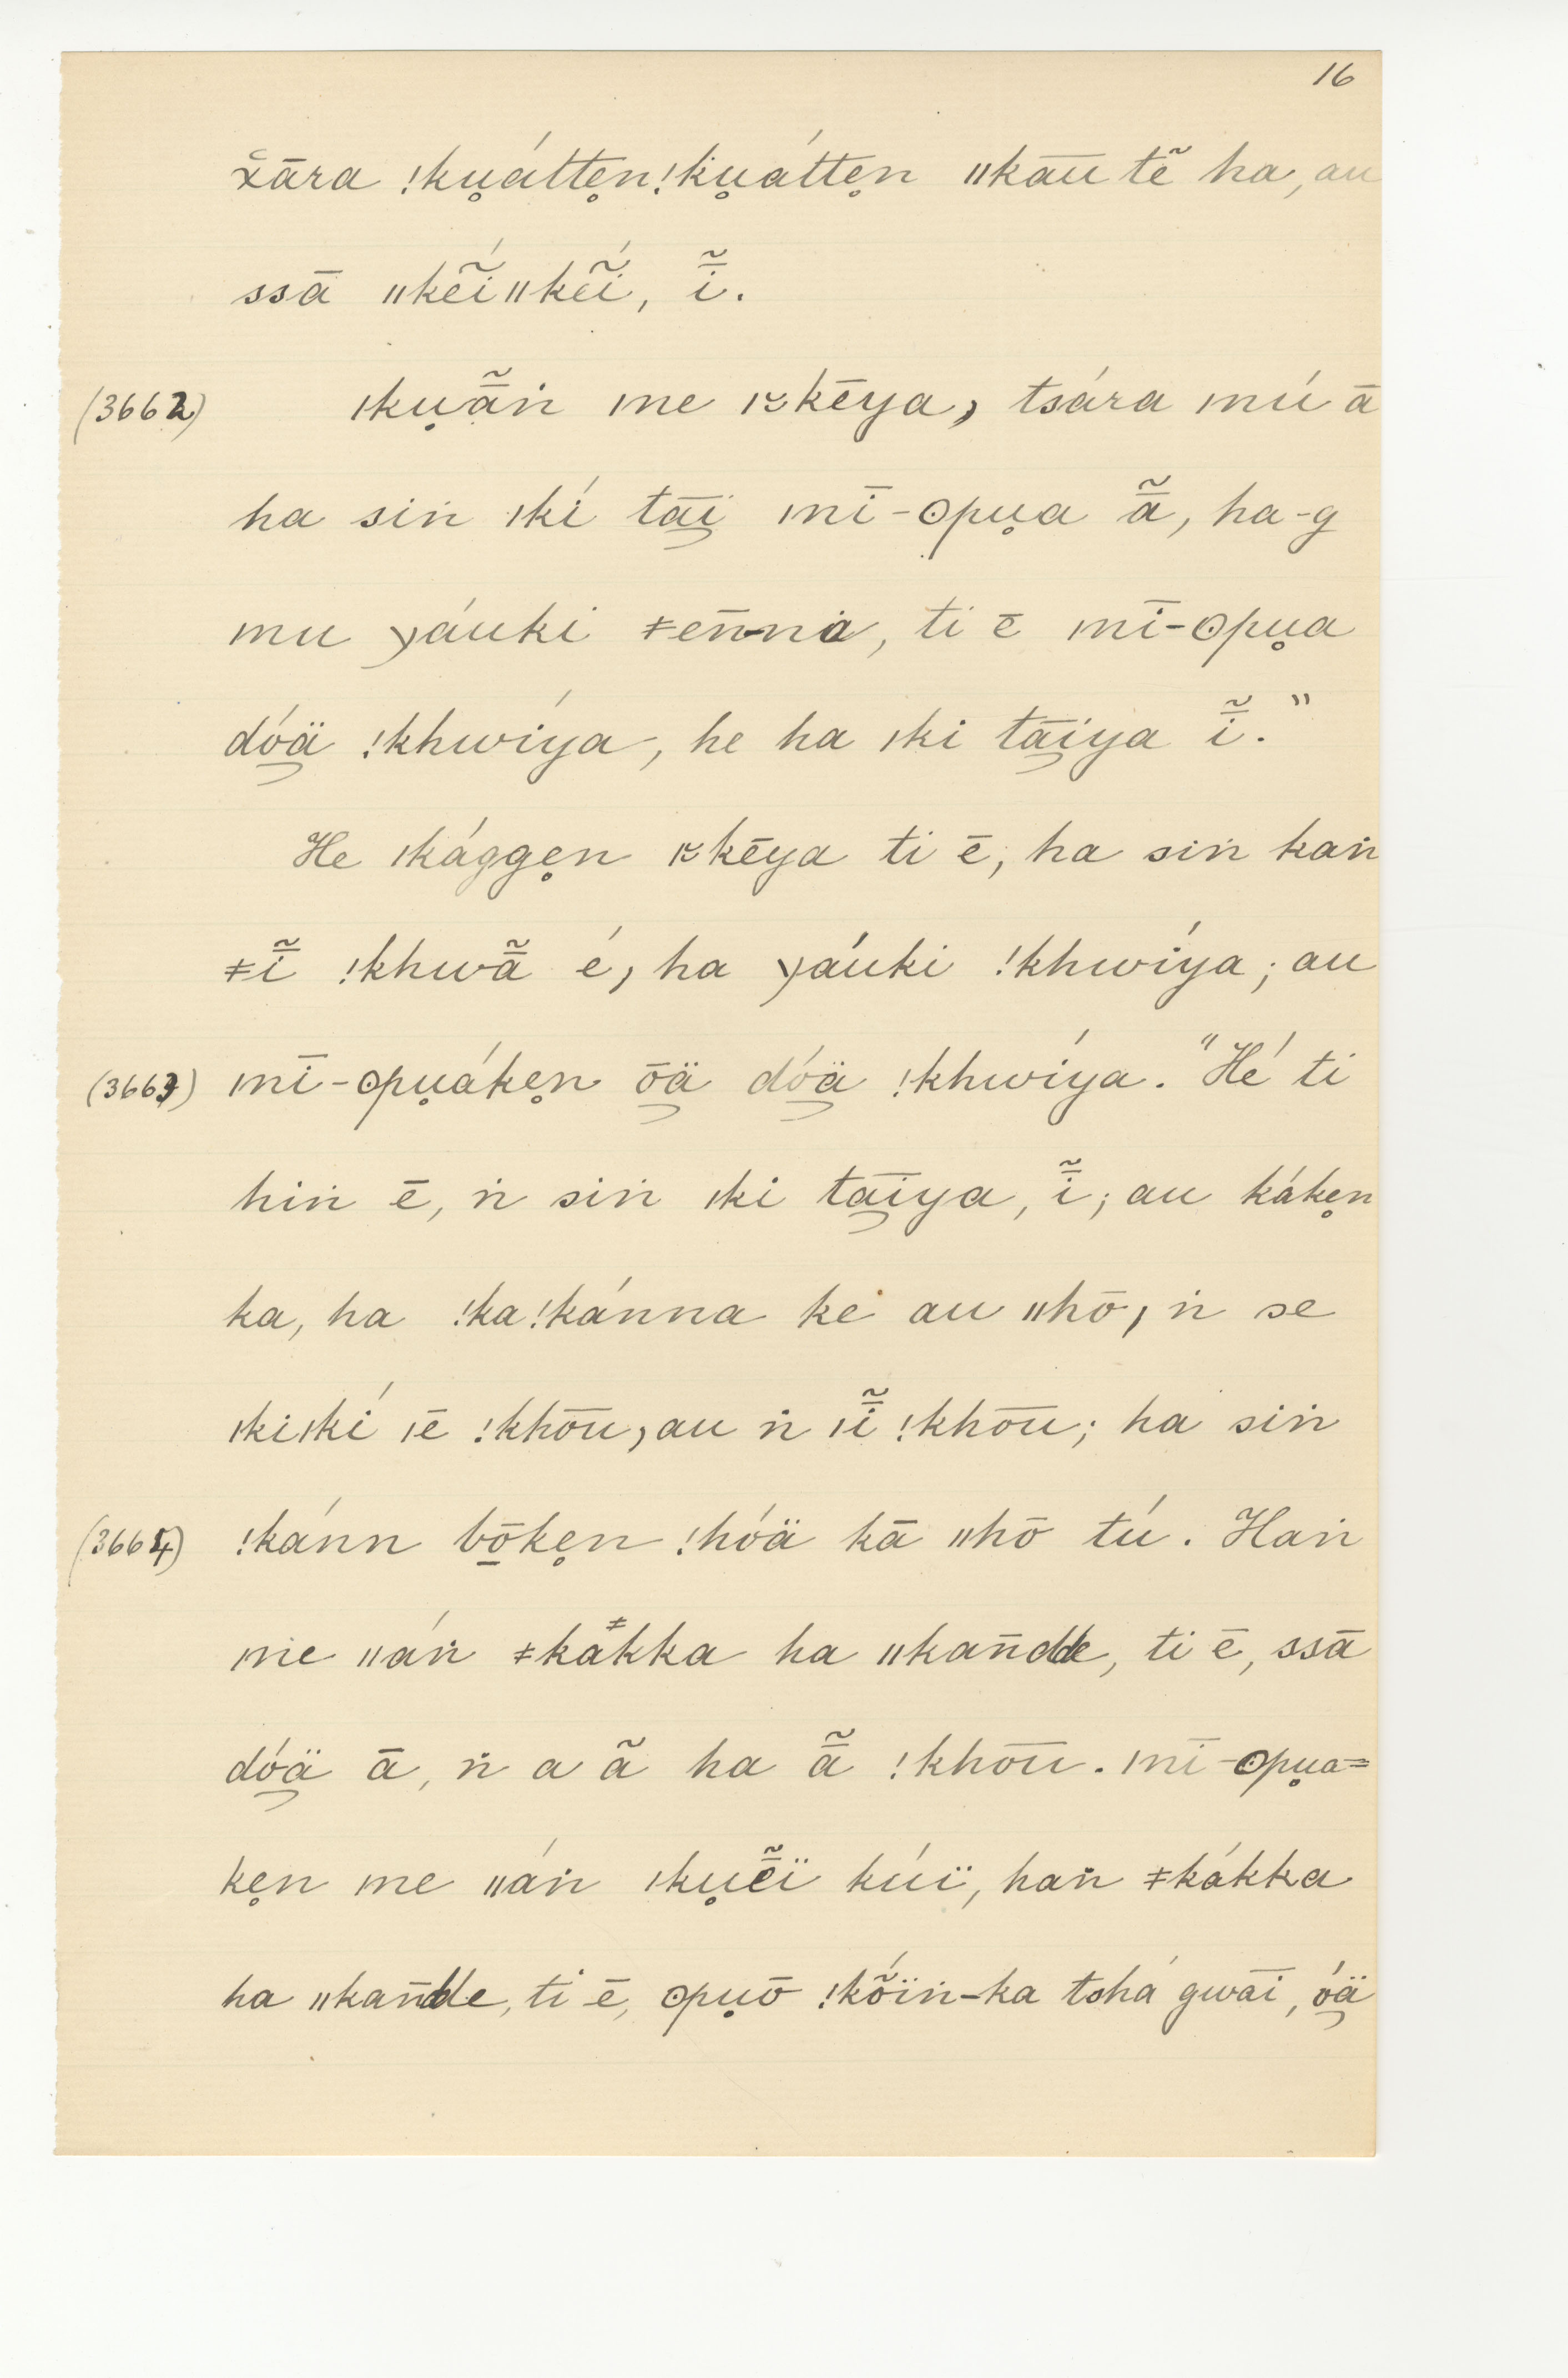 16
x̆āra !ku̥átte̥n!ku̥átte̥n ǁkāū tẽ ha, au
ssā ǁkẽíǁkẽí, ī̃.
(3662) ǀku̥ā̃ṅ ǀne ǀ꞉kēya, tsára ǀnú ā
ha siṅ ǀkí tāī ǀnī-ʘpu̥a ā̃, ha-g
ǀnu ɣáuki ǂen̄-na, ti ē ǀnī-ʘpu̥a
dóä !khwíya, he ha ǀki tāīya ī̃."
He ǀkágge̥n ǀ꞉kēya ti ē, ha siṅ kaṅ
ǂī̃ !khwā̃ é, ha ɣáuki !khwíya; au
(3663) ǀnī-ʘpu̥áke̥n ōä dóä !khwíya. "Hé ti
hiṅ ē, ṅ siṅ ǀki tāīya, ī̃; au káke̥n
ka, ha !ka!kánna ke au ǁhō, ṅ se
ǀkiǀkí ǀē !khōū, au ṅ ǀī̃ !khōū; ha siṅ
(3664) !kánn bō̠ke̥n !hóä kā ǁhō tú. Haṅ
ǀne ǁáṅ ǂkákka ha ǁkan̄dde, ti ē, ssā
dóä ā, ṅ a ã ha ā̃ !khōū. ǀnī-ʘpu̥a=
ke̥n ǀne ǁáṅ ǀku̥ē̃ï kúï, han̄ ǂkákka
ha ǁkan̄dde, ti ē, ʘpu̥ō !kṍïṅ-ka tshá gwāī, óä